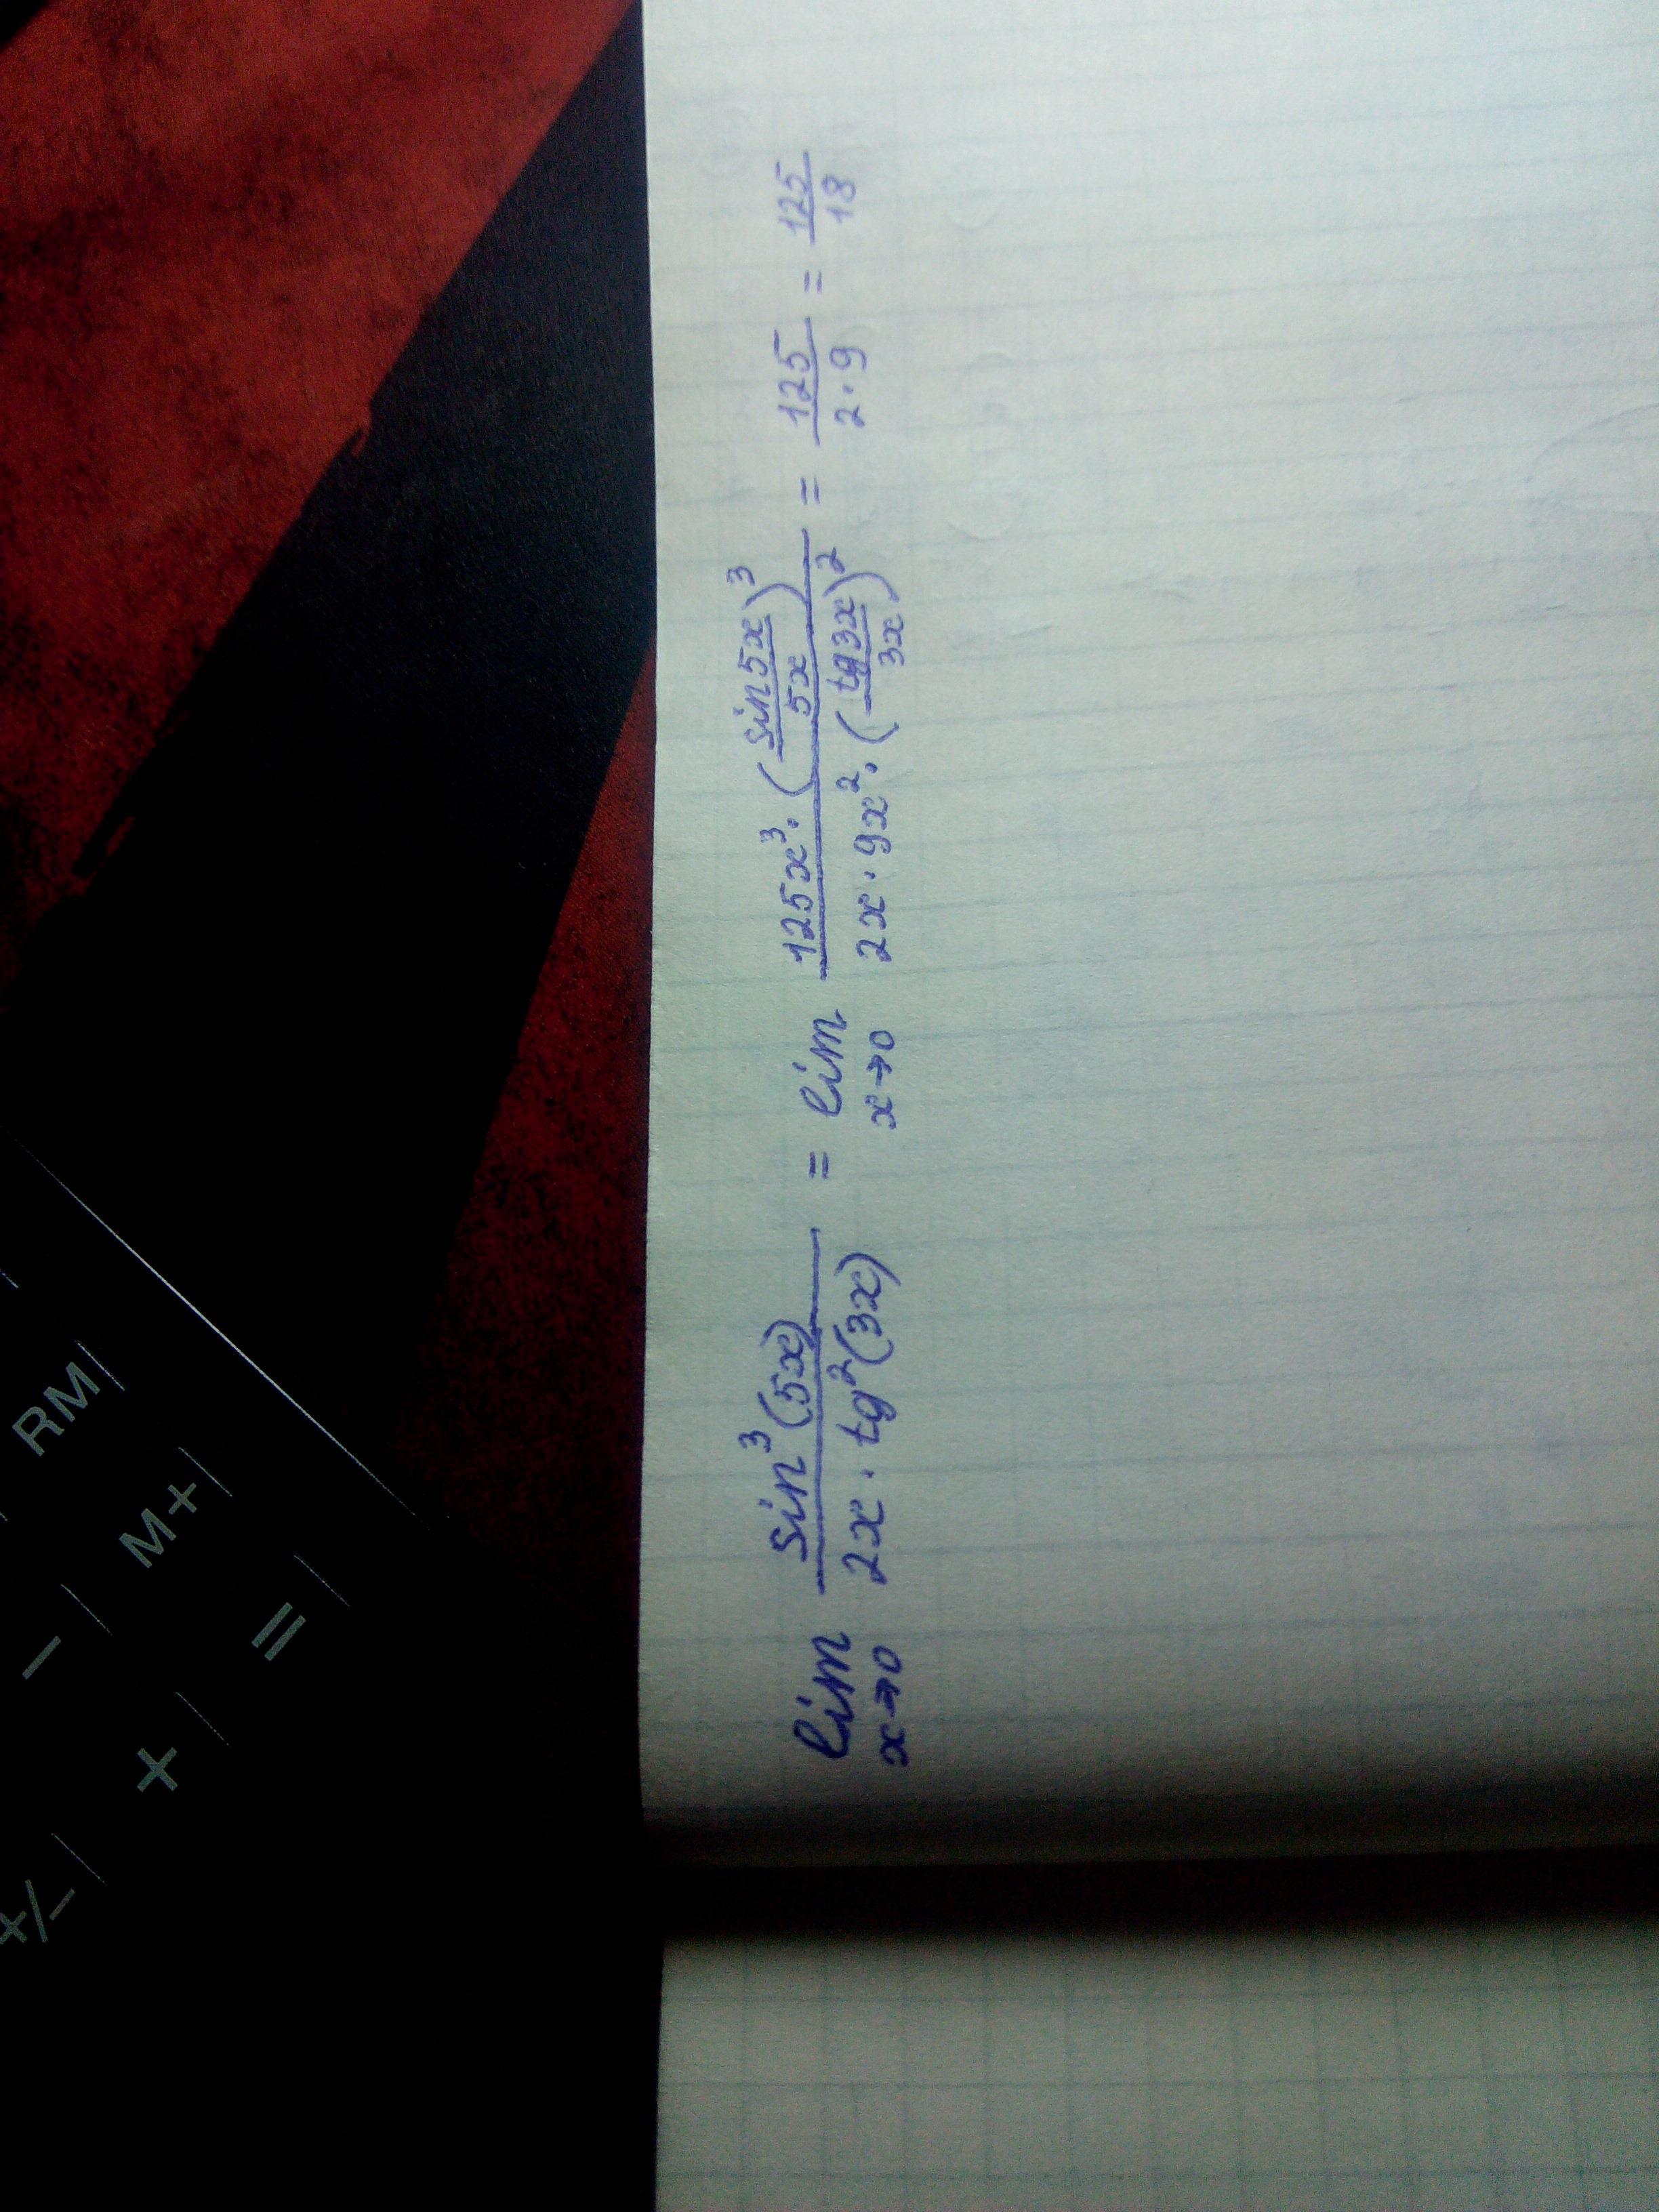 lim x→0 sin³(5x) / 2x · tg²(3x) = lim x→0 125x³ · (sin5x / 5x)³ / 2x · 9x² · (tg3x / 3x)² = 125 / 2 · 9 = 125 / 18
RM
− M+
+ =
+/−